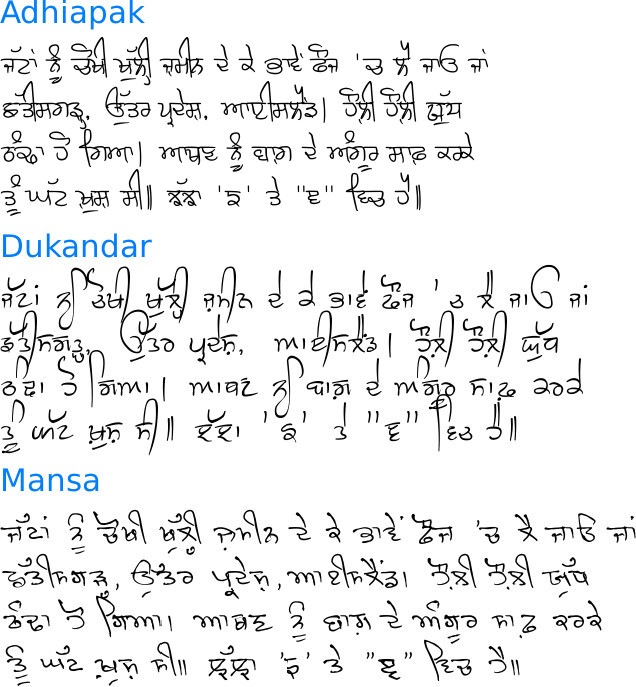 Adhiapak
ਜੱਟਾਂ ਨੂੰ ਚੋਖੀ ਖੁੱਲ੍ਹੀ ਜ਼ਮੀਨ ਦੇ ਕੇ ਭਾਵੇਂ ਫੌਜ 'ਚ ਲੈ ਜਾਓ ਜਾਂ
ਛੱਤੀਸਗੜ੍ਹ, ਉੱਤਰ ਪ੍ਰਦੇਸ਼, ਆਈਸਲੈਂਡ। ਹੌਲੀ ਹੌਲੀ ਯੁੱਧ
ਠੰਢਾ ਹੋ ਗਿਆ। ਆਥਣ ਨੂੰ ਬਾਗ਼ ਦੇ ਅੰਗੂਰ ਸਾਫ਼ ਕਰਕੇ
ਤੂੰ ਘੱਟ ਖ਼ੁਸ਼ ਸੀ॥ ਝੱਝਾ 'ਙ' ਤੇ "ਞ" ਵਿਚ ਹੈ॥
Dukandar
ਜੱਟਾਂ ਨੂੰ ਚੋਖੀ ਖੁੱਲ੍ਹੀ ਜ਼ਮੀਨ ਦੇ ਕੇ ਭਾਵੇਂ ਫੌਜ 'ਚ ਲੈ ਜਾਓ ਜਾਂ
ਛੱਤੀਸਗੜ੍ਹ, ਉੱਤਰ ਪ੍ਰਦੇਸ਼, ਆਈਸਲੈਂਡ। ਹੌਲੀ ਹੌਲੀ ਯੁੱਧ
ਠੰਢਾ ਹੋ ਗਿਆ। ਆਥਣ ਨੂੰ ਬਾਗ਼ ਦੇ ਅੰਗੂਰ ਸਾਫ਼ ਕਰਕੇ
ਤੂੰ ਘੱਟ ਖ਼ੁਸ਼ ਸੀ॥ ਝੱਝਾ 'ਙ' ਤੇ "ਞ" ਵਿਚ ਹੈ॥
Mansa
ਜੱਟਾਂ ਨੂੰ ਚੋਖੀ ਖੁੱਲ੍ਹੀ ਜ਼ਮੀਨ ਦੇ ਕੇ ਭਾਵੇਂ ਫੌਜ 'ਚ ਲੈ ਜਾਓ ਜਾਂ
ਛੱਤੀਸਗੜ੍ਹ, ਉੱਤਰ ਪ੍ਰਦੇਸ਼, ਆਈਸਲੈਂਡ। ਹੌਲੀ ਹੌਲੀ ਯੁੱਧ
ਠੰਢਾ ਹੋ ਗਿਆ। ਆਥਣ ਨੂੰ ਬਾਗ਼ ਦੇ ਅੰਗੂਰ ਸਾਫ਼ ਕਰਕੇ
ਤੂੰ ਘੱਟ ਖ਼ੁਸ਼ ਸੀ॥ ਝੱਝਾ 'ਙ' ਤੇ "ਞ" ਵਿਚ ਹੈ॥